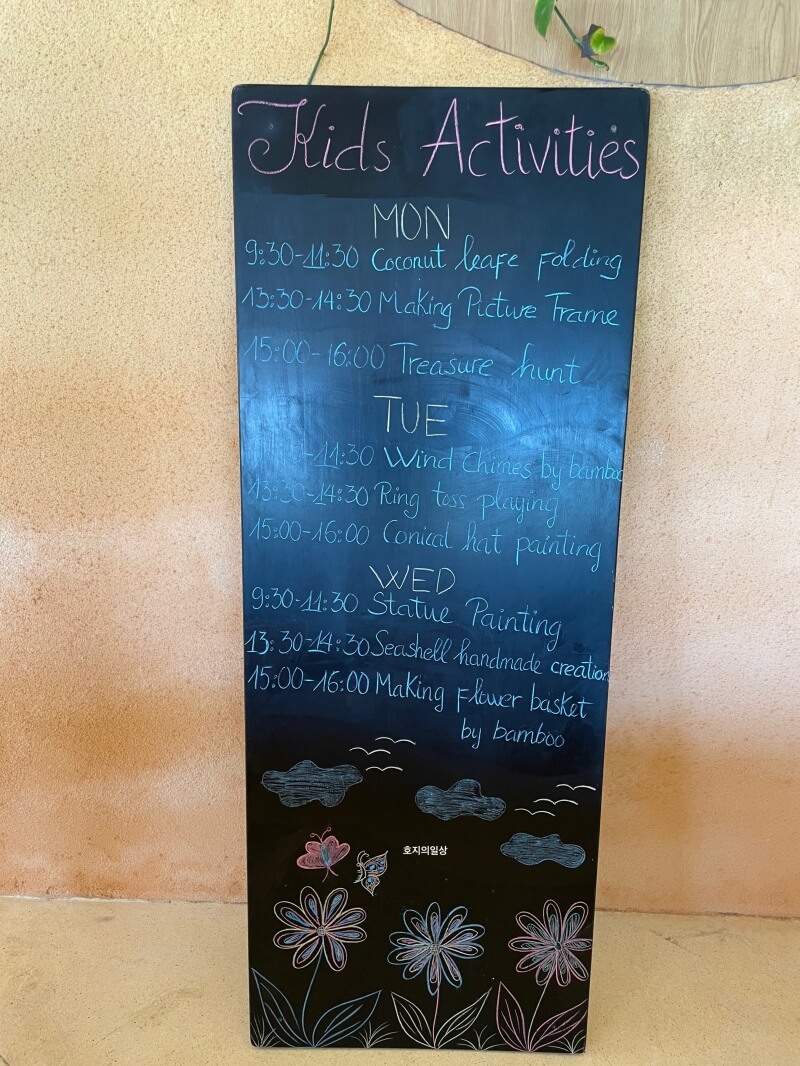 Kids Activities
MON
9:30-11:30 Coconut leafe folding
13:30-14:30 Making Picture Frame
15:00-16:00 Treasure hunt
TUE
-11:30 Wind Chimes by bamboo
13:30-14:30 Ring toss playing
15:00-16:00 Conical hat painting
WED
9:30-11:30 Statue Painting
13:30-14:30 Seashell handmade creation
15:00-16:00 Making Flower basket
by bamboo
호지의일상